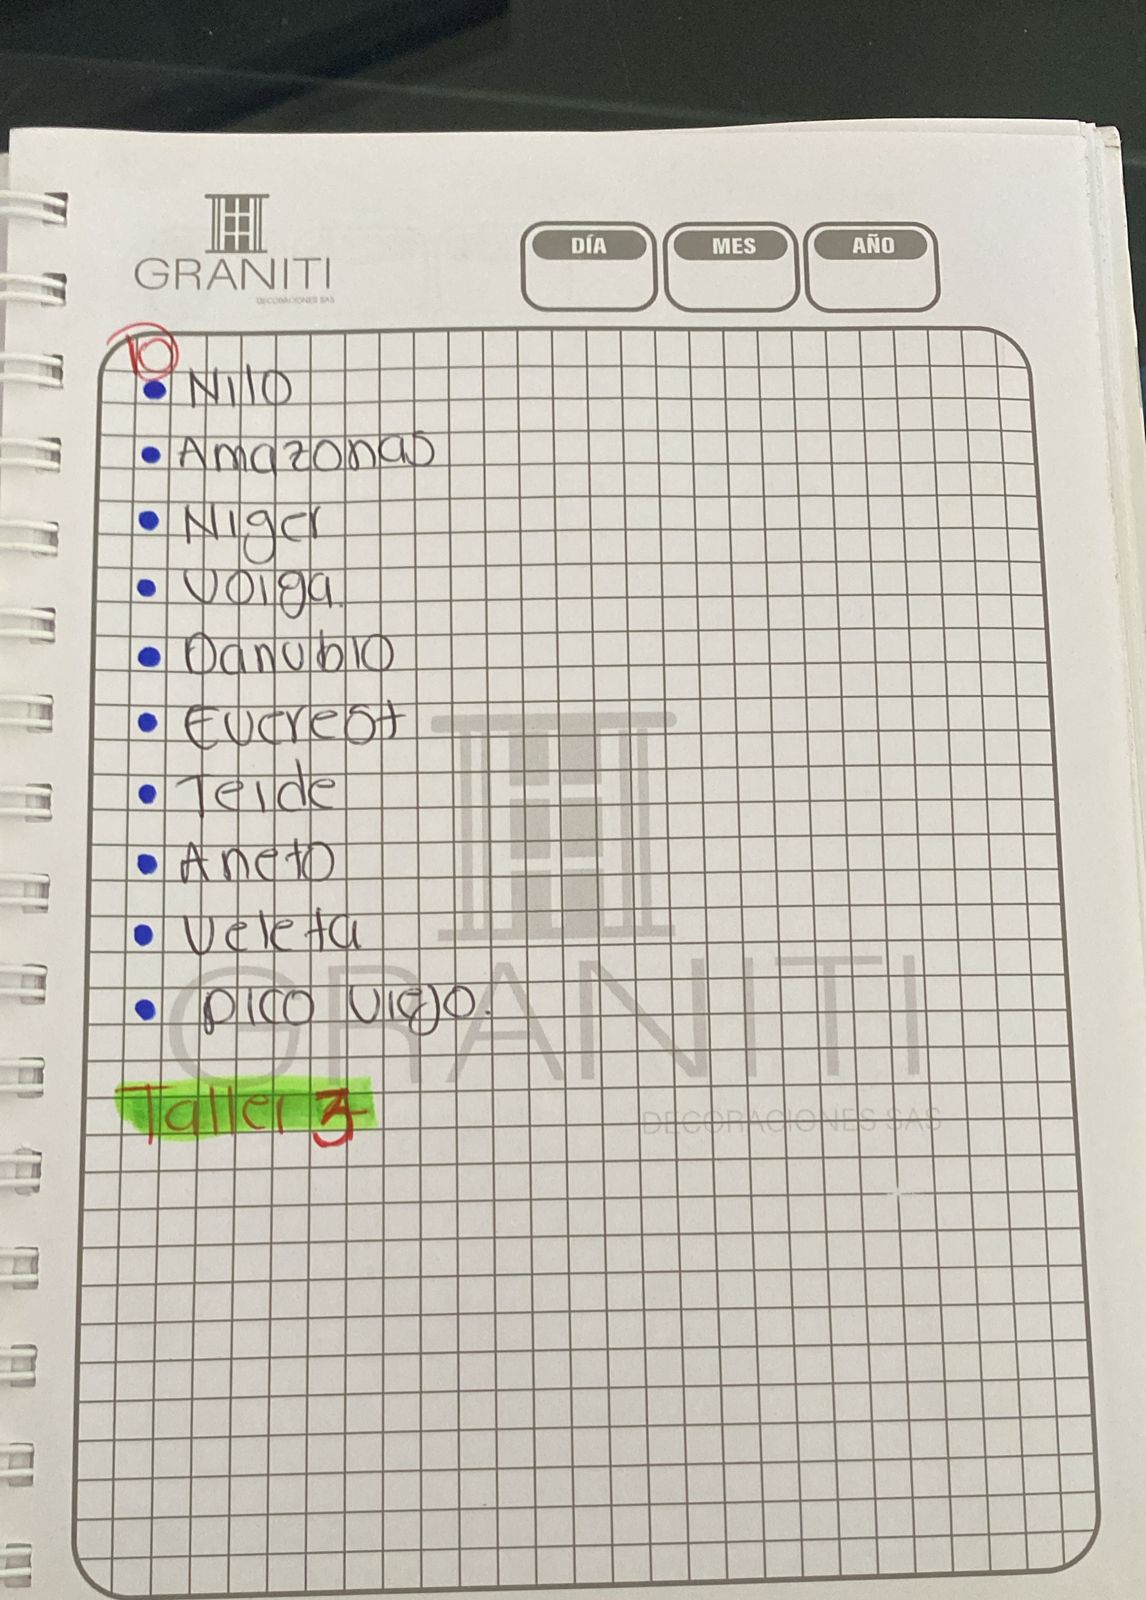 GRANITI
DECORACIONES SAS
DÍA MES AÑO
10
• Nilo
• Amazonas
• Niger
• Volga.
• Danubio
• Everest
• Teide
• Aneto
• Veleta
• pico viejo.
GRANITI
Taller 3
DECORACIONES SAS